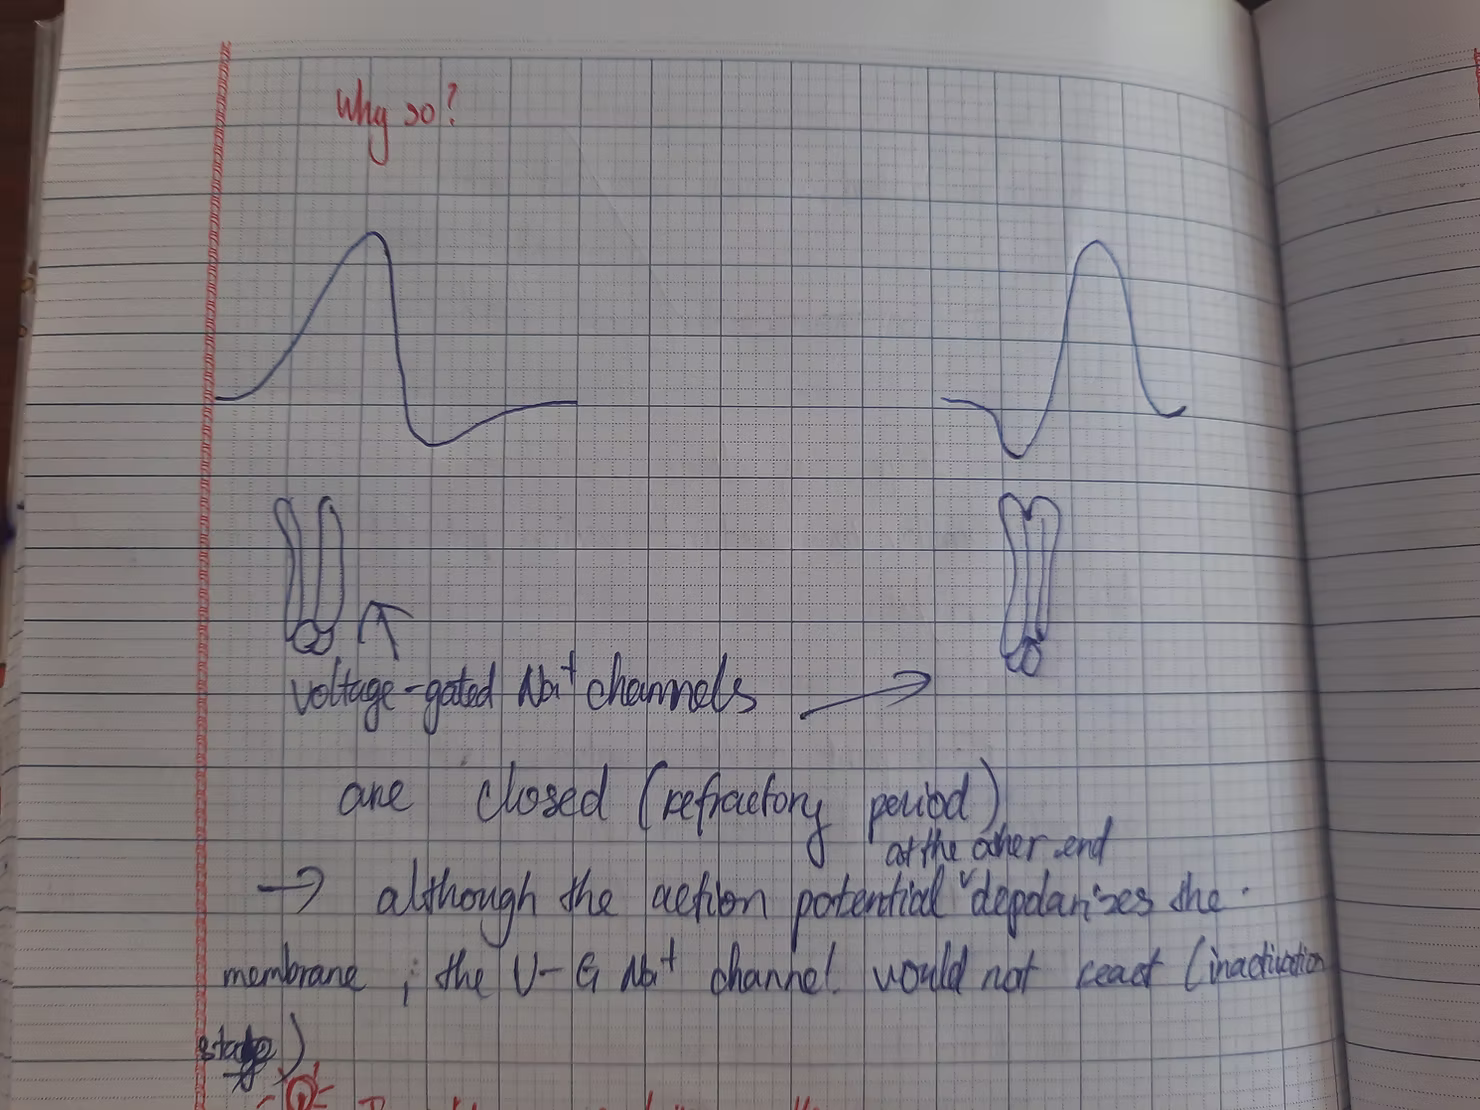 Why so?
voltage-gated Na+ channels
are closed (refractory period)
at the other end
→ although the action potential ˅ depolarizes the
membrane ; the V-G Na+ channel would not react (inactivation
stage)